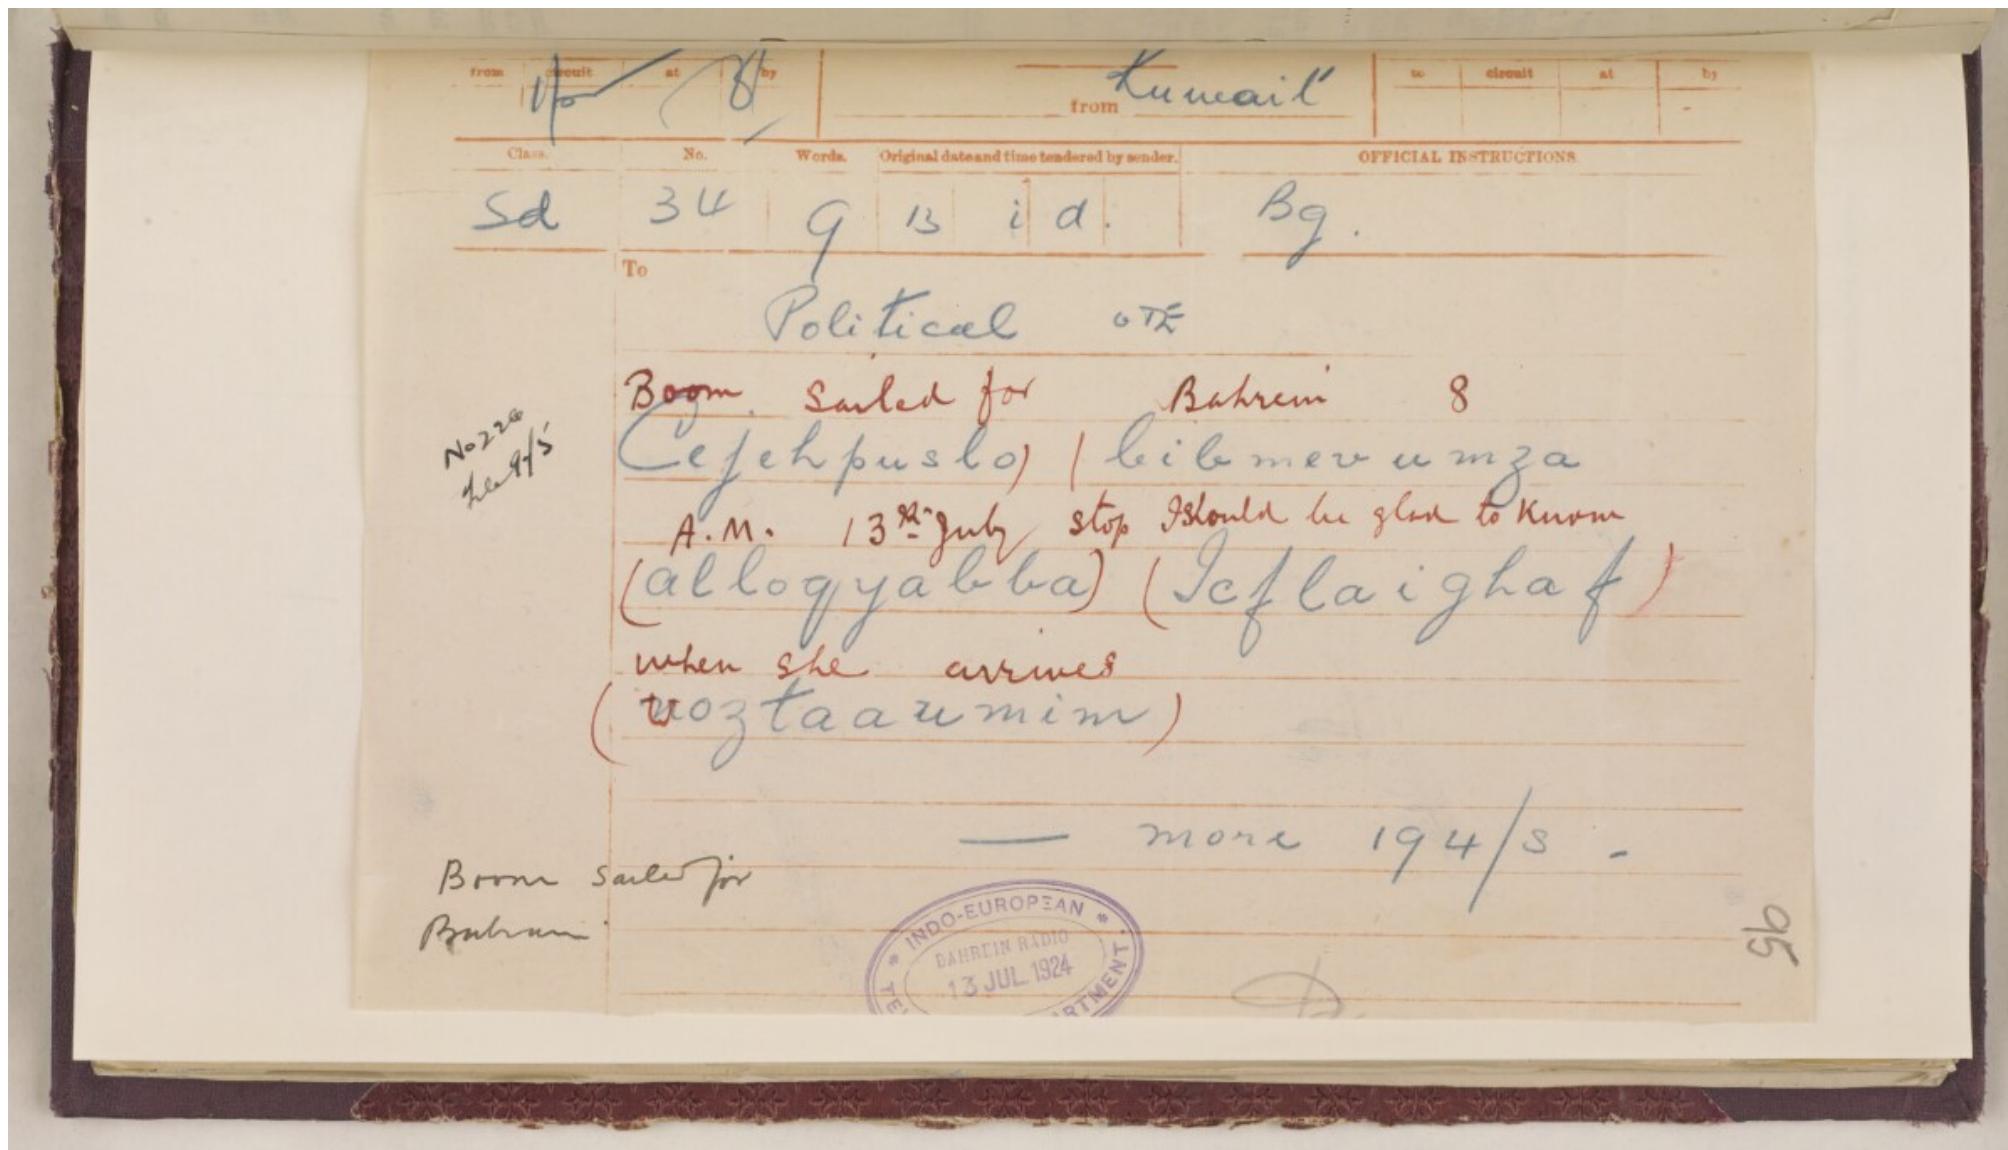 from circuit at by from Kuwait to circuit at by
Class. No. Words. Original date and time tendered by sender. OFFICIAL INSTRUCTIONS
Sd 34 9 13 i d. Bg.
To
Political
Boom sailed for Bahrein 8
Cejehpuslo) (bibmevumza
A.M. 13th July stop I should be glad to know
(alloqyabba) (Icflaighaf)
when she arrives
(uoztaaumim)
— more 194/S -
Boom sailed for
Bahrein
INDO-EUROPEAN
BAHREIN RADIO
13 JUL 1924
95